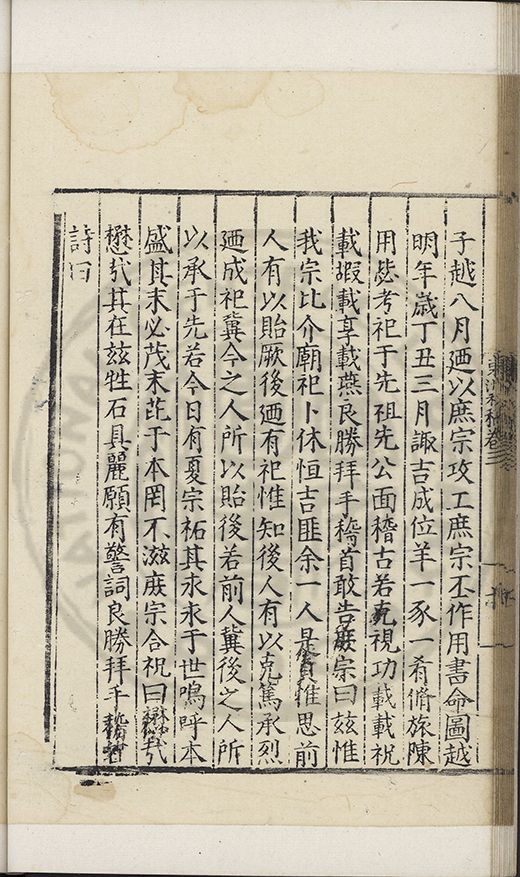 子越八月廼以庶宗攻工庶宗丕作用書命圖越
明年歲丁丑三月諏吉成位羊一豕一肴脩旅陳
用㤗考祀于先祖先公面稽古若克視功載載祝
載嘏載享載燕良勝拜手稽首敢告庶宗曰玆惟
我宗比介廟祀卜休恒吉匪余一人是賁惟思前
人有以貽厥後廼有祀惟知後人有以克篤承烈
廼成祀冀今之人所以貽後若前人冀後之人所
以承于先若今日有夏宗祏其永永于世嗚呼本
盛其末必茂末芘于本罔不滋庶宗合祝曰懋㢤
懋㢤其在玆牲石具麗願有警詞良勝拜手稽首
詩曰
東洲初稿卷